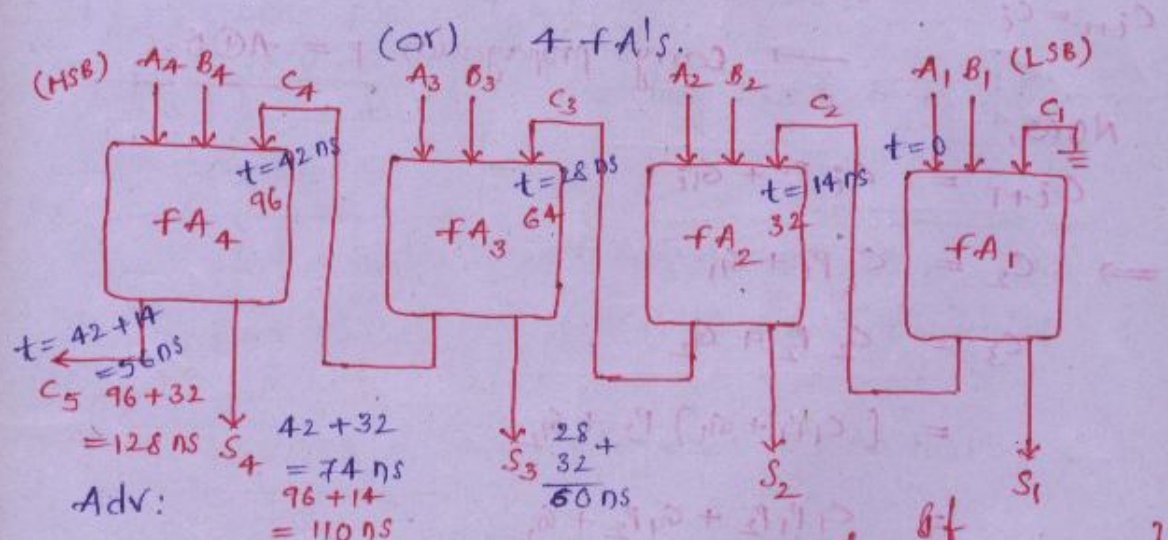 (or) 4 fA's.
(MSB) A4 B4 C4 A3 B3 C3 A2 B2 C2 A1 B1 (LSB) C1
t=42 ns t=28 ns t=14 ns t=0
96 64 32
fA4 fA3 fA2 fA1
t= 42+14
=56ns
C5 96+32
=128 ns S4 42+32
= 74 ns
96+14
= 110 ns
S3 28 +
32
60 ns
S2 S1
Adv: